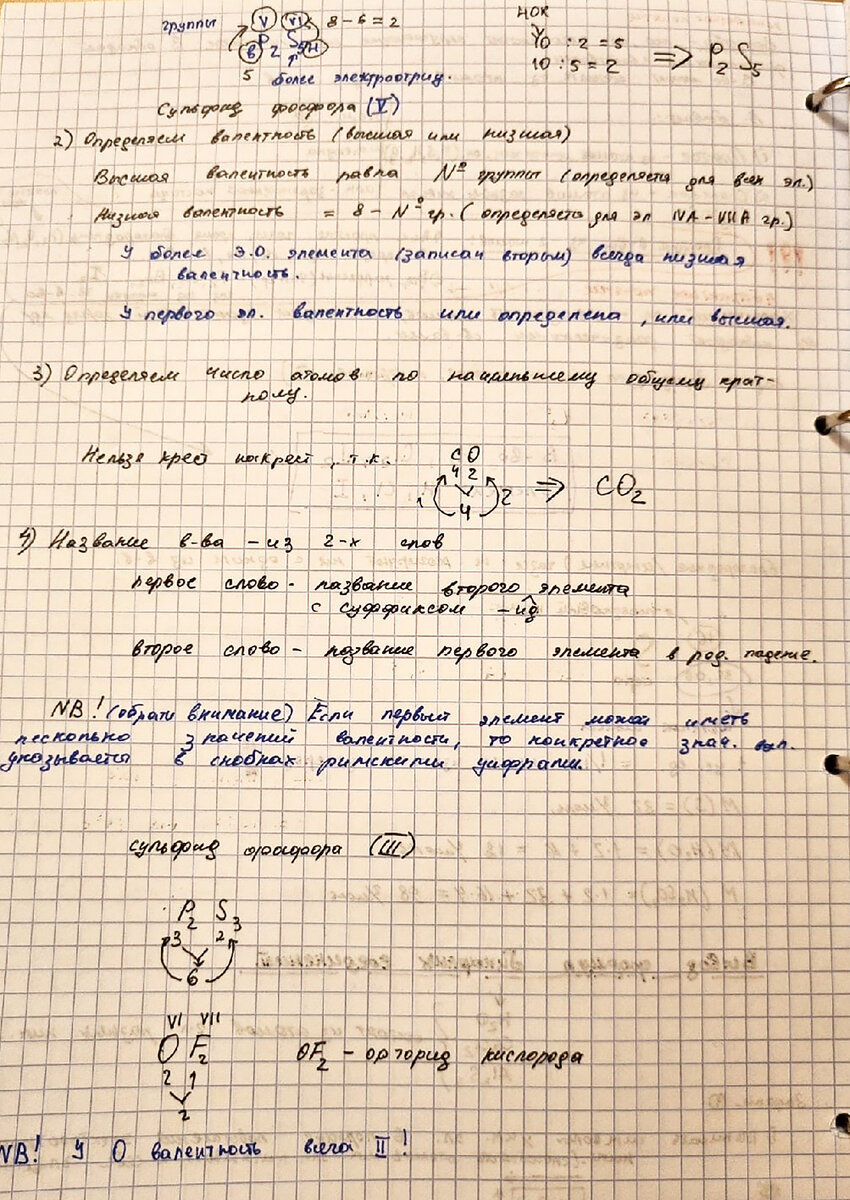 группы V VI 8-6=2
НОК
P2 S5
в н
10 : 2 = 5
10 : 5 = 2 => P2S5
5 более электроотриц.
Сульфид фосфора (V)
2) Определяем валентность (высшая или низшая)
Высшая валентность равна № группы (определяется для всех эл.)
Низшая валентность = 8 - № гр. (определяется для эл IVA - VIIA гр.)
У более Э.О. элемента (записан вторым) всегда низшая
валентность.
У первого эл. валентность или определена, или высшая.
3) Определяем число атомов по наименьшему общему крат-
ному.
Нельзя крест накрест, т.к.
CO
4 2
1 4 2 => CO2
4) Название в-ва - из 2-х слов
первое слово - название второго элемента
с суффиксом -ид
второе слово - название первого элемента в род. падеже.
NB! (обрати внимание) Если первый элемент может иметь
несколько значений валентности, то конкретное знач. вал.
указывается в скобках римскими цифрами.
сульфид фосфора (III)
P2 S3
3 2
6
VI VII
O F2 OF2 - фторид кислорода
2 1
2
NB! У O валентность всегда II!